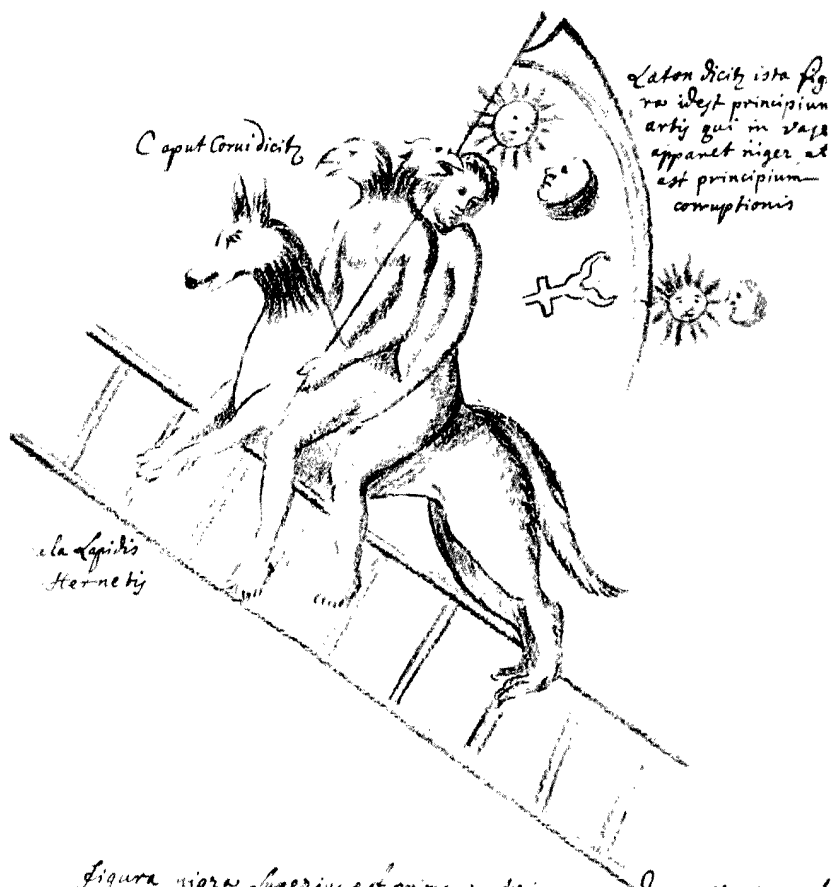 Caput Corui dicitz
Laton dicitz ista fig
ra idest principium
artis qui in vase
apparet niger, et
est principium
corruptionis
ala Lapidis
Hernetis
figura nigra superius est